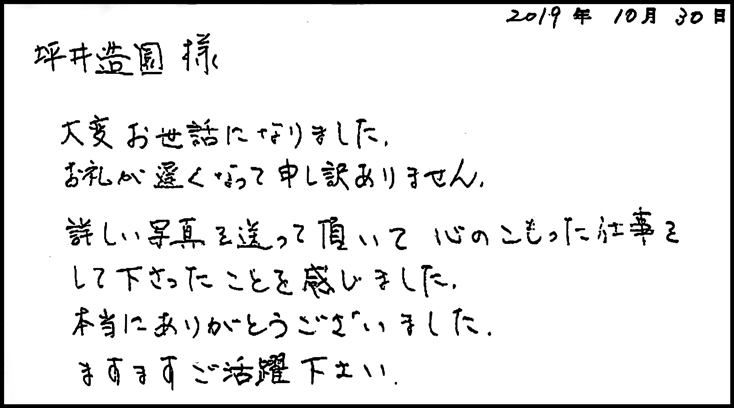 2019年 10月 30日
坪井造園 様
大変お世話になりました.
お礼が遅くなって申し訳ありません.
詳しい写真を送って頂いて 心のこもった仕事を
して下さったことを感じました.
本当にありがとうございました.
ますますご活躍下さい.